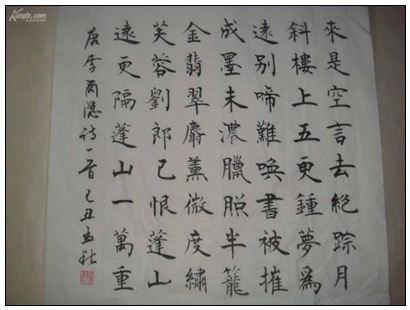 來是空言去絕踪月
斜樓上五更鍾夢為
遠別啼難喚書被摧
成墨未濃臘照半籠
金翡翠麝薰微度繡
芙蓉劉郎已恨蓬山
遠更隔蓬山一萬重
唐李商隱詩一首乙丑孟秋